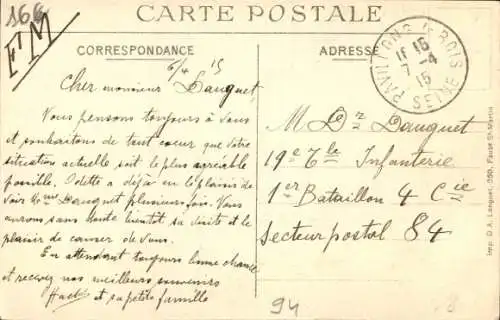 166
F M
CARTE POSTALE
CORRESPONDANCE
ADRESSE
6/4 15
Cher monsieur Dauguet,
Nous pensons toujours à vous
et souhaitons de tout cœur que votre
situation actuelle soit le plus agréable
possible. Odette a déjà eu le plaisir de
voir Mme Dauguet plusieurs fois. Nous
aurons sans doute bientôt sa visite et le
plaisir de causer de vous.
En attendant toujours bonne chance
et recevez nos meilleurs souvenirs
et sa petite famille
PAVILLONS S BOIS
16
7 -4
15
SEINE
M Dr Dauguet
19e Tle Infanterie
1er Bataillon 4 Cie
Secteur postal 84
94
Imp. D.A. Longuet, 250, Faub. St-Martin